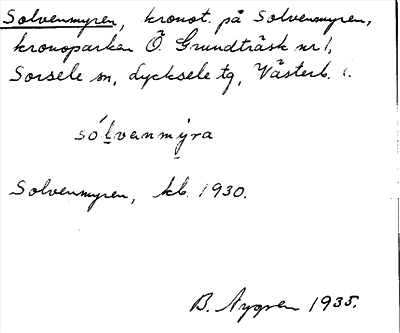 Solvenmyren, kronot. på Solvenmyren,
kronoparken Ö. Grundträsk nr 1,
Sorsele sn, Lycksele tg, Västerb. l.
sólvanmýra
Solvenmyren, kb. 1930.
B. Nygren 1935.